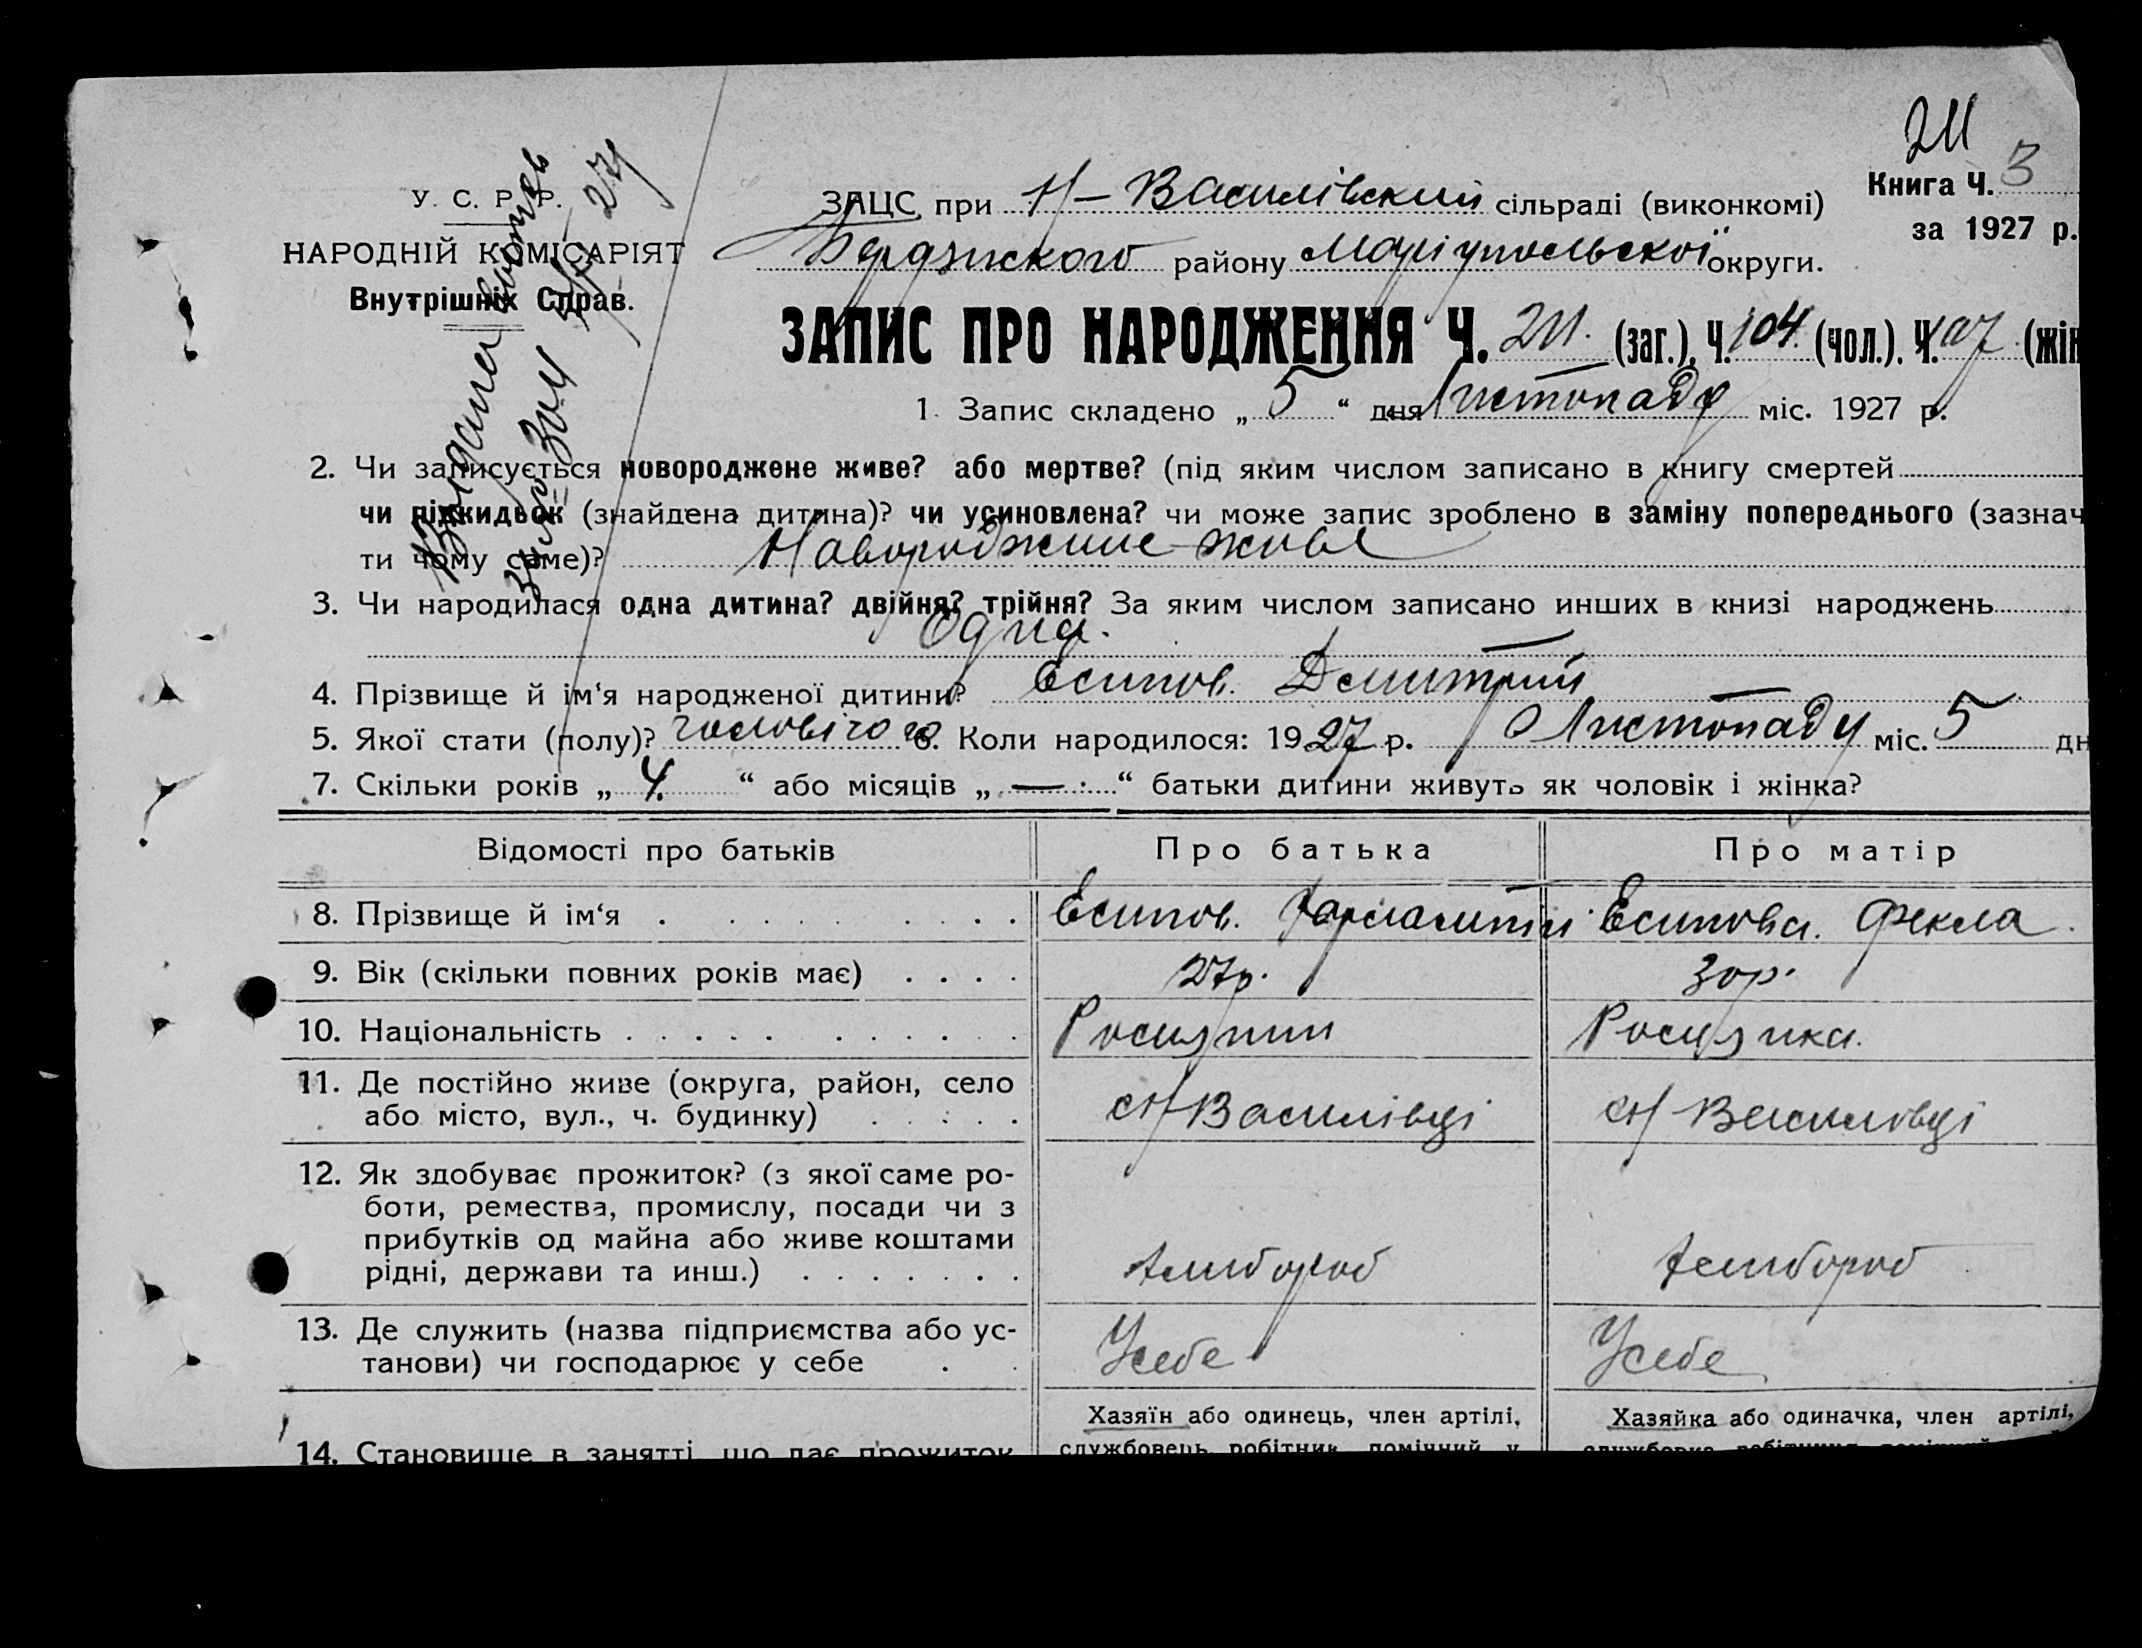 211
Книга Ч. 3
за 1927 р.
У. С. Р. Р.
НАРОДНІЙ КОМІСАРІЯТ
Внутрішніх Справ.
ЗАЦС при Н-Василівский сільраді (виконкомі)
Бердянского району Маріупольської округи.
ЗАПИС ПРО НАРОДЖЕННЯ Ч. 211. (заг.), Ч. 104. (чол.). Ч. 107. (жін
1. Запис складено „ 5 “ дня Листопаду міс. 1927 р.
2. Чи записується новороджене живе? або мертве? (під яким числом записано в книгу смертей
чи підкидьок (знайдена дитина)? чи усиновлена? чи може запис зроблено в заміну попереднього (зазнач
ти чому саме)? Новороджине живе
3. Чи народилася одна дитина? двійня? трійня? За яким числом записано инших в книзі народжень
Одна.
4. Прізвище й ім‘я народженої дитини? Есипов. Дмитрий
5. Якої стати (полу)? чоловічого 6. Коли народилося: 1927 р. Листопаду міс. 5 дн
7. Скільки років „ 4. “ або місяців „ — “ батьки дитини живуть як чоловік і жінка?
Відомості про батьків Про батька Про матір
8. Прізвище й ім‘я Есипов. Есипова. Фекла.
9. Вік (скільки повних років має) 27р. 30р.
10. Національність Росиянин Росиянка.
11. Де постійно живе (округа, район, село
або місто, вул., ч. будинку) сН-Василівці сН-Василовці
12. Як здобуває прожиток? (з якої саме ро-
боти, ремества, промислу, посади чи з
прибутків од майна або живе коштами
рідні, держави та инш.) Хлибороб Хлибороб
13. Де служить (назва підприємства або ус-
танови) чи господарює у себе Усебе Усебе
Хазяїн або одинець, член артілі, Хазяйка або одиначка, член артілі,
14. Становище в занятті, що дає прожиток службовець, робітник, помічний у